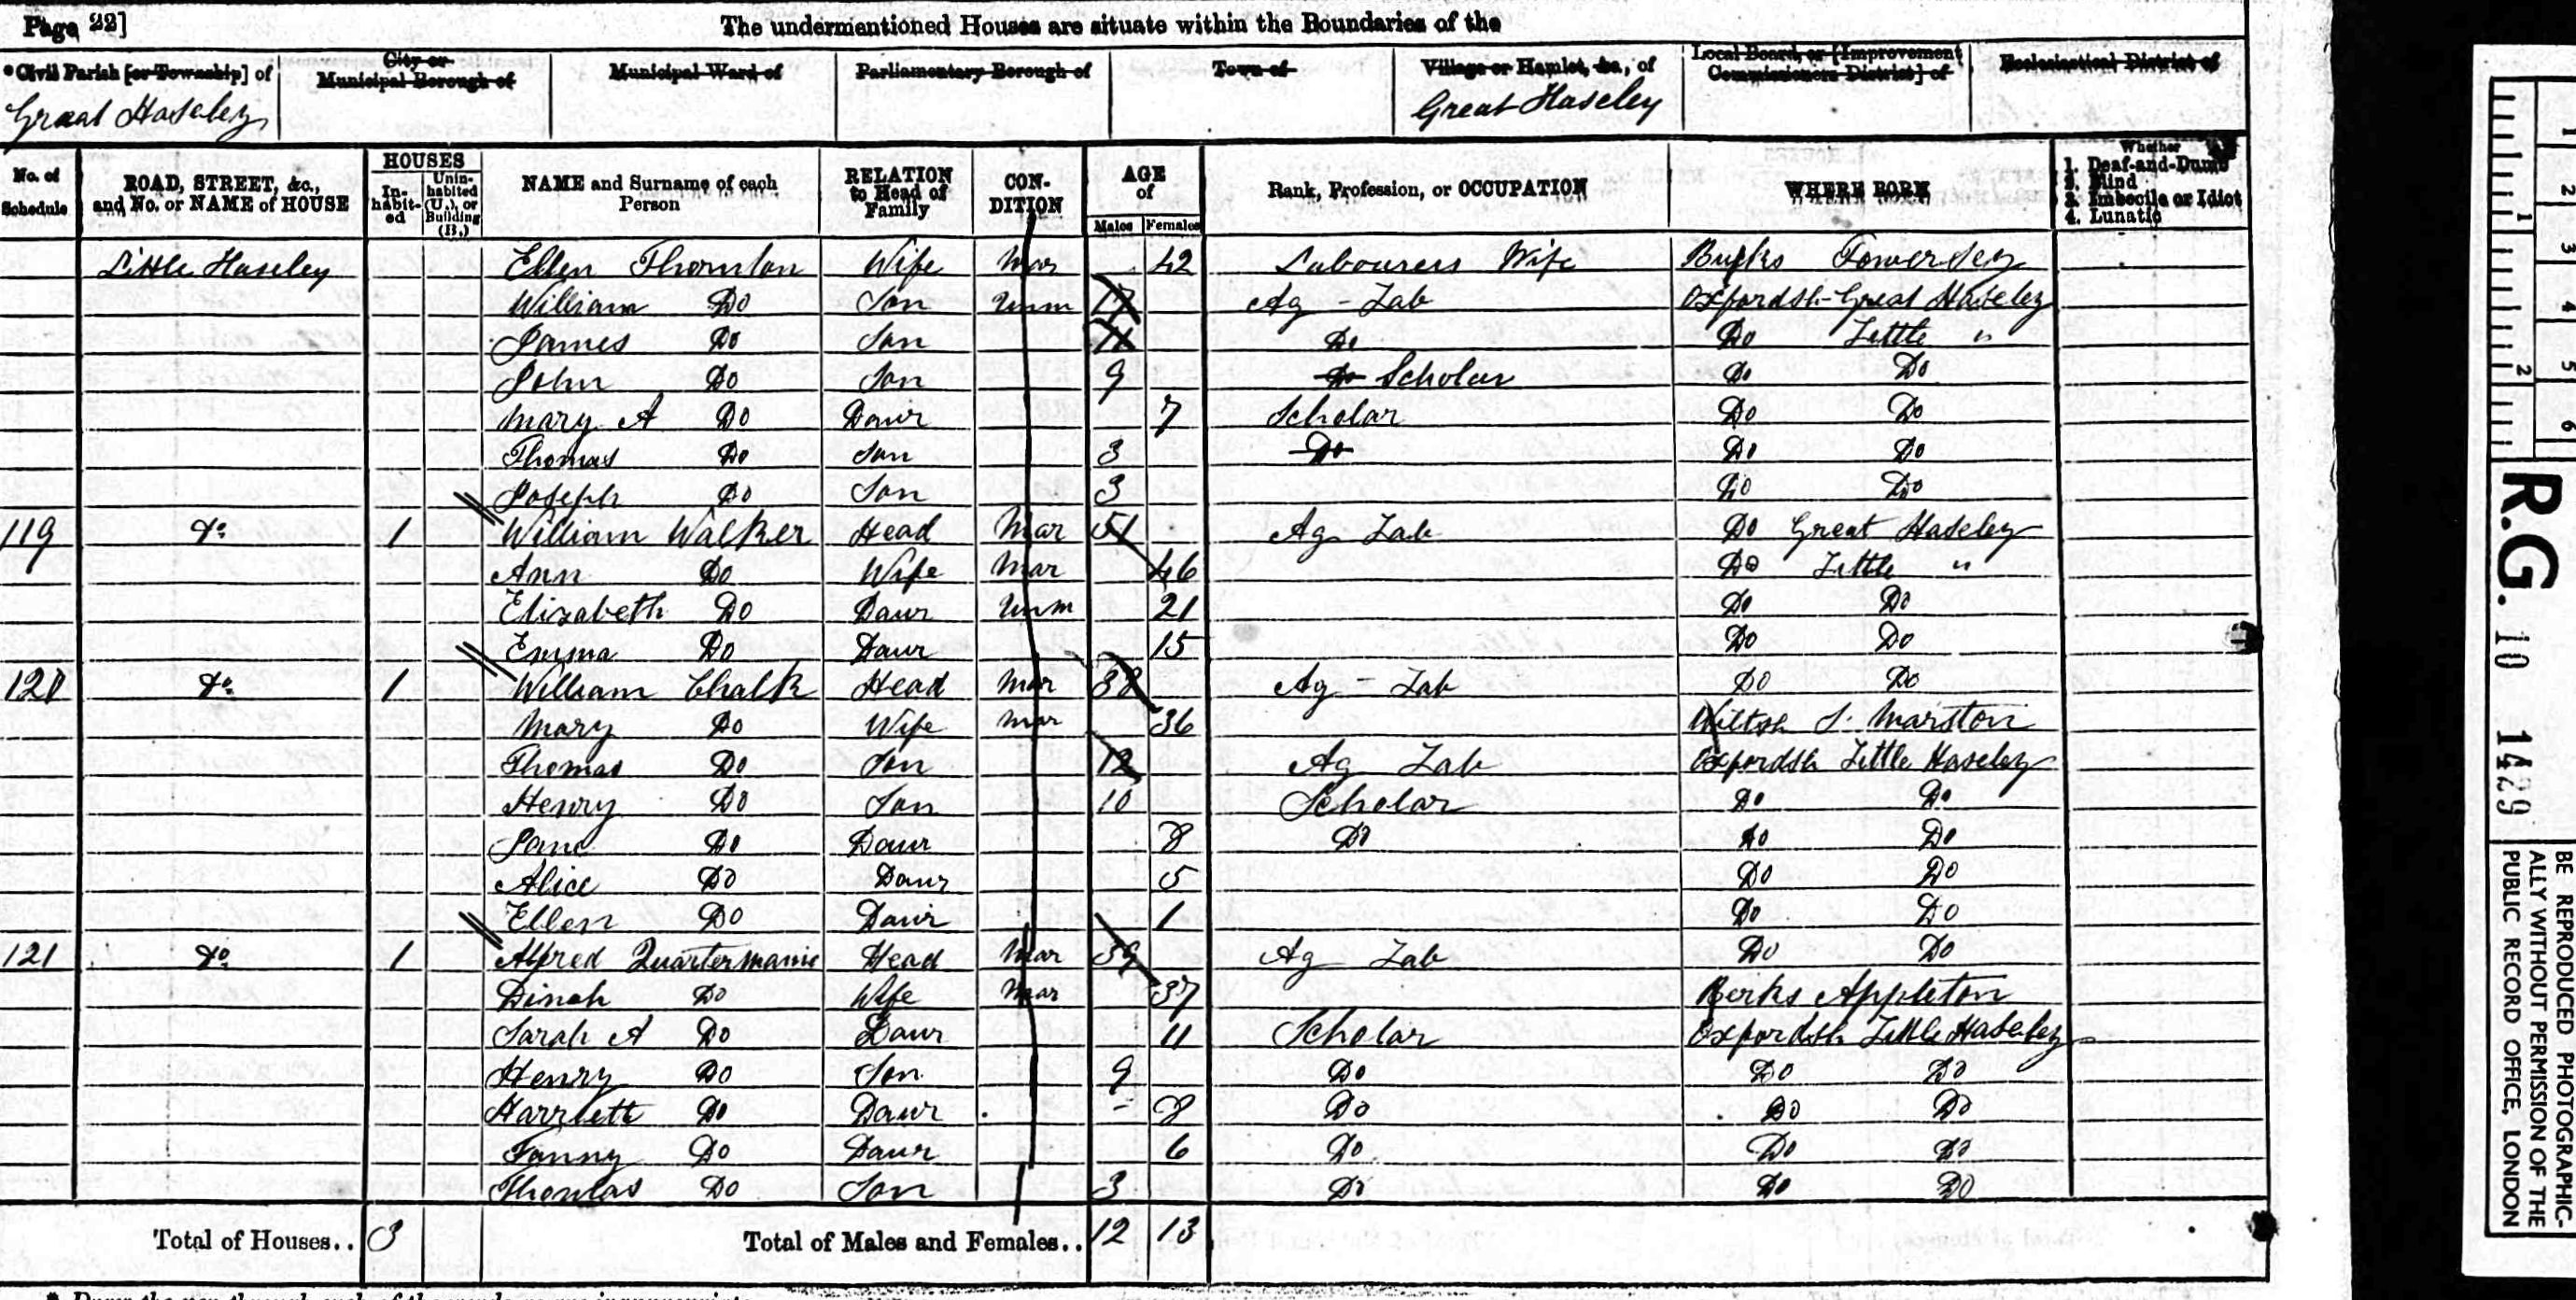 Page 22] The undermentioned Houses are situate within the Boundaries of the
*Civil Parish [or Township] of City or Municipal Borough of Municipal Ward of Parliamentary Borough of Town of Village or Hamlet, &c., of Local Board, or [Improvement Commissioners District] of Ecclesiastical District of
Great Haseley Great Haseley
No. of Schedule ROAD, STREET, &c., and No. or NAME of HOUSE HOUSES Inhabited Uninhabited (U.), or Building (B.) NAME and Surname of each Person RELATION to Head of Family CONDITION AGE of Males Females Rank, Profession, or OCCUPATION WHERE BORN Whether 1. Deaf-and-Dumb 2. Blind 3. Imbecile or Idiot 4. Lunatic
Little Haseley Ellen Thornton Wife Mar 42 Labourers Wife Bucks Towersey
William Do Son Unm 17 Ag - Lab Oxfordsh Great Haseley
James Do Son Do Do Little "
John Do Son 9 Do Scholar Do Do
Mary A Do Daur 7 Scholar Do Do
Thomas Do Son 3 Do Do Do
Joseph Do Son 3 Do Do
119 Do 1 William Walker Head Mar 51 Ag Lab Do Great Haseley
Ann Do Wife Mar 46 Do Little "
Elizabeth Do Daur Unm 21 Do Do
Emma Do Daur 15 Do Do
120 Do 1 William Chalk Head Mar 38 Ag - Lab Do Do
Mary Do Wife Mar 36 Wiltsh S. Marston
Thomas Do Son 12 Ag Lab Oxfordsh Little Haseley
Henry Do Son 10 Scholar Do Do
Jane Do Daur 8 Do Do Do
Alice Do Daur 5 Do Do
Ellen Do Daur 1 Do Do
121 Do 1 Alfred Quartermaine Head Mar 39 Ag Lab Do Do
Dinah Do Wife Mar 37 Berks Appleton
Sarah A Do Daur 11 Scholar Oxfordsh Little Haseley
Henry Do Son 9 Do Do Do
Harriett Do Daur - 8 Do Do Do
Fanny Do Daur 6 Do Do Do
Thomas Do Son 3 Do Do Do
Total of Houses.. 3 Total of Males and Females.. 12 13
R.G. 10 1429
BE REPRODUCED PHOTOGRAPHIC-
ALLY WITHOUT PERMISSION OF THE
PUBLIC RECORD OFFICE, LONDON
1 2 3 4 5 6
1 2